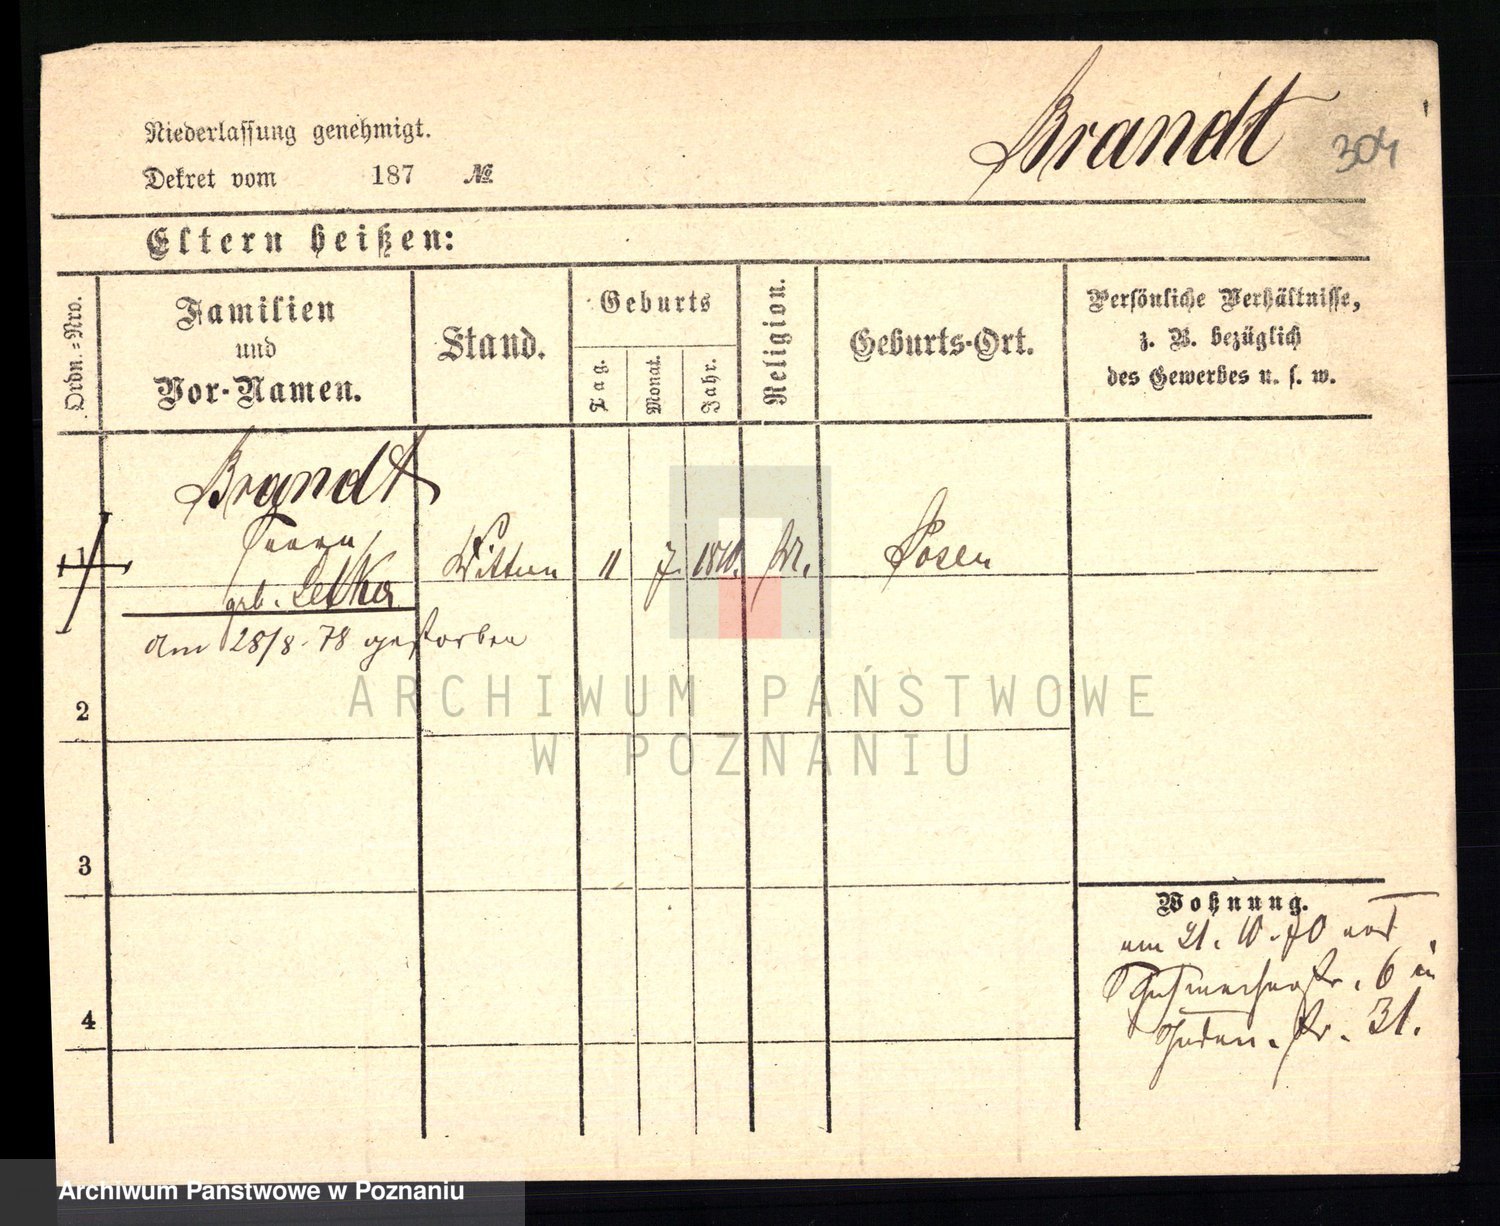 Brandt 304
Niederlassung genehmigt.
Dekret vom 187 №
Eltern heißen:
Ordn.-Nro.
Familien
und
Vor-Namen.
Stand.
Geburts
Tag.
Monat.
Jahr.
Religion.
Geburts-Ort.
Persönliche Verhältnisse,
z. B. bezüglich
des Gewerbes u. s. w.
Brandt
1 Wittwe 11 7. 1810. Posen
geb.
am 28/8. 78 gestorben
2
3
4
Wohnung.
am 21. 10. 70 aus
Schuhmacherstr. 6 in
Juden. Str. 31.
ARCHIWUM PAŃSTWOWE
W POZNANIU
Archiwum Państwowe w Poznaniu